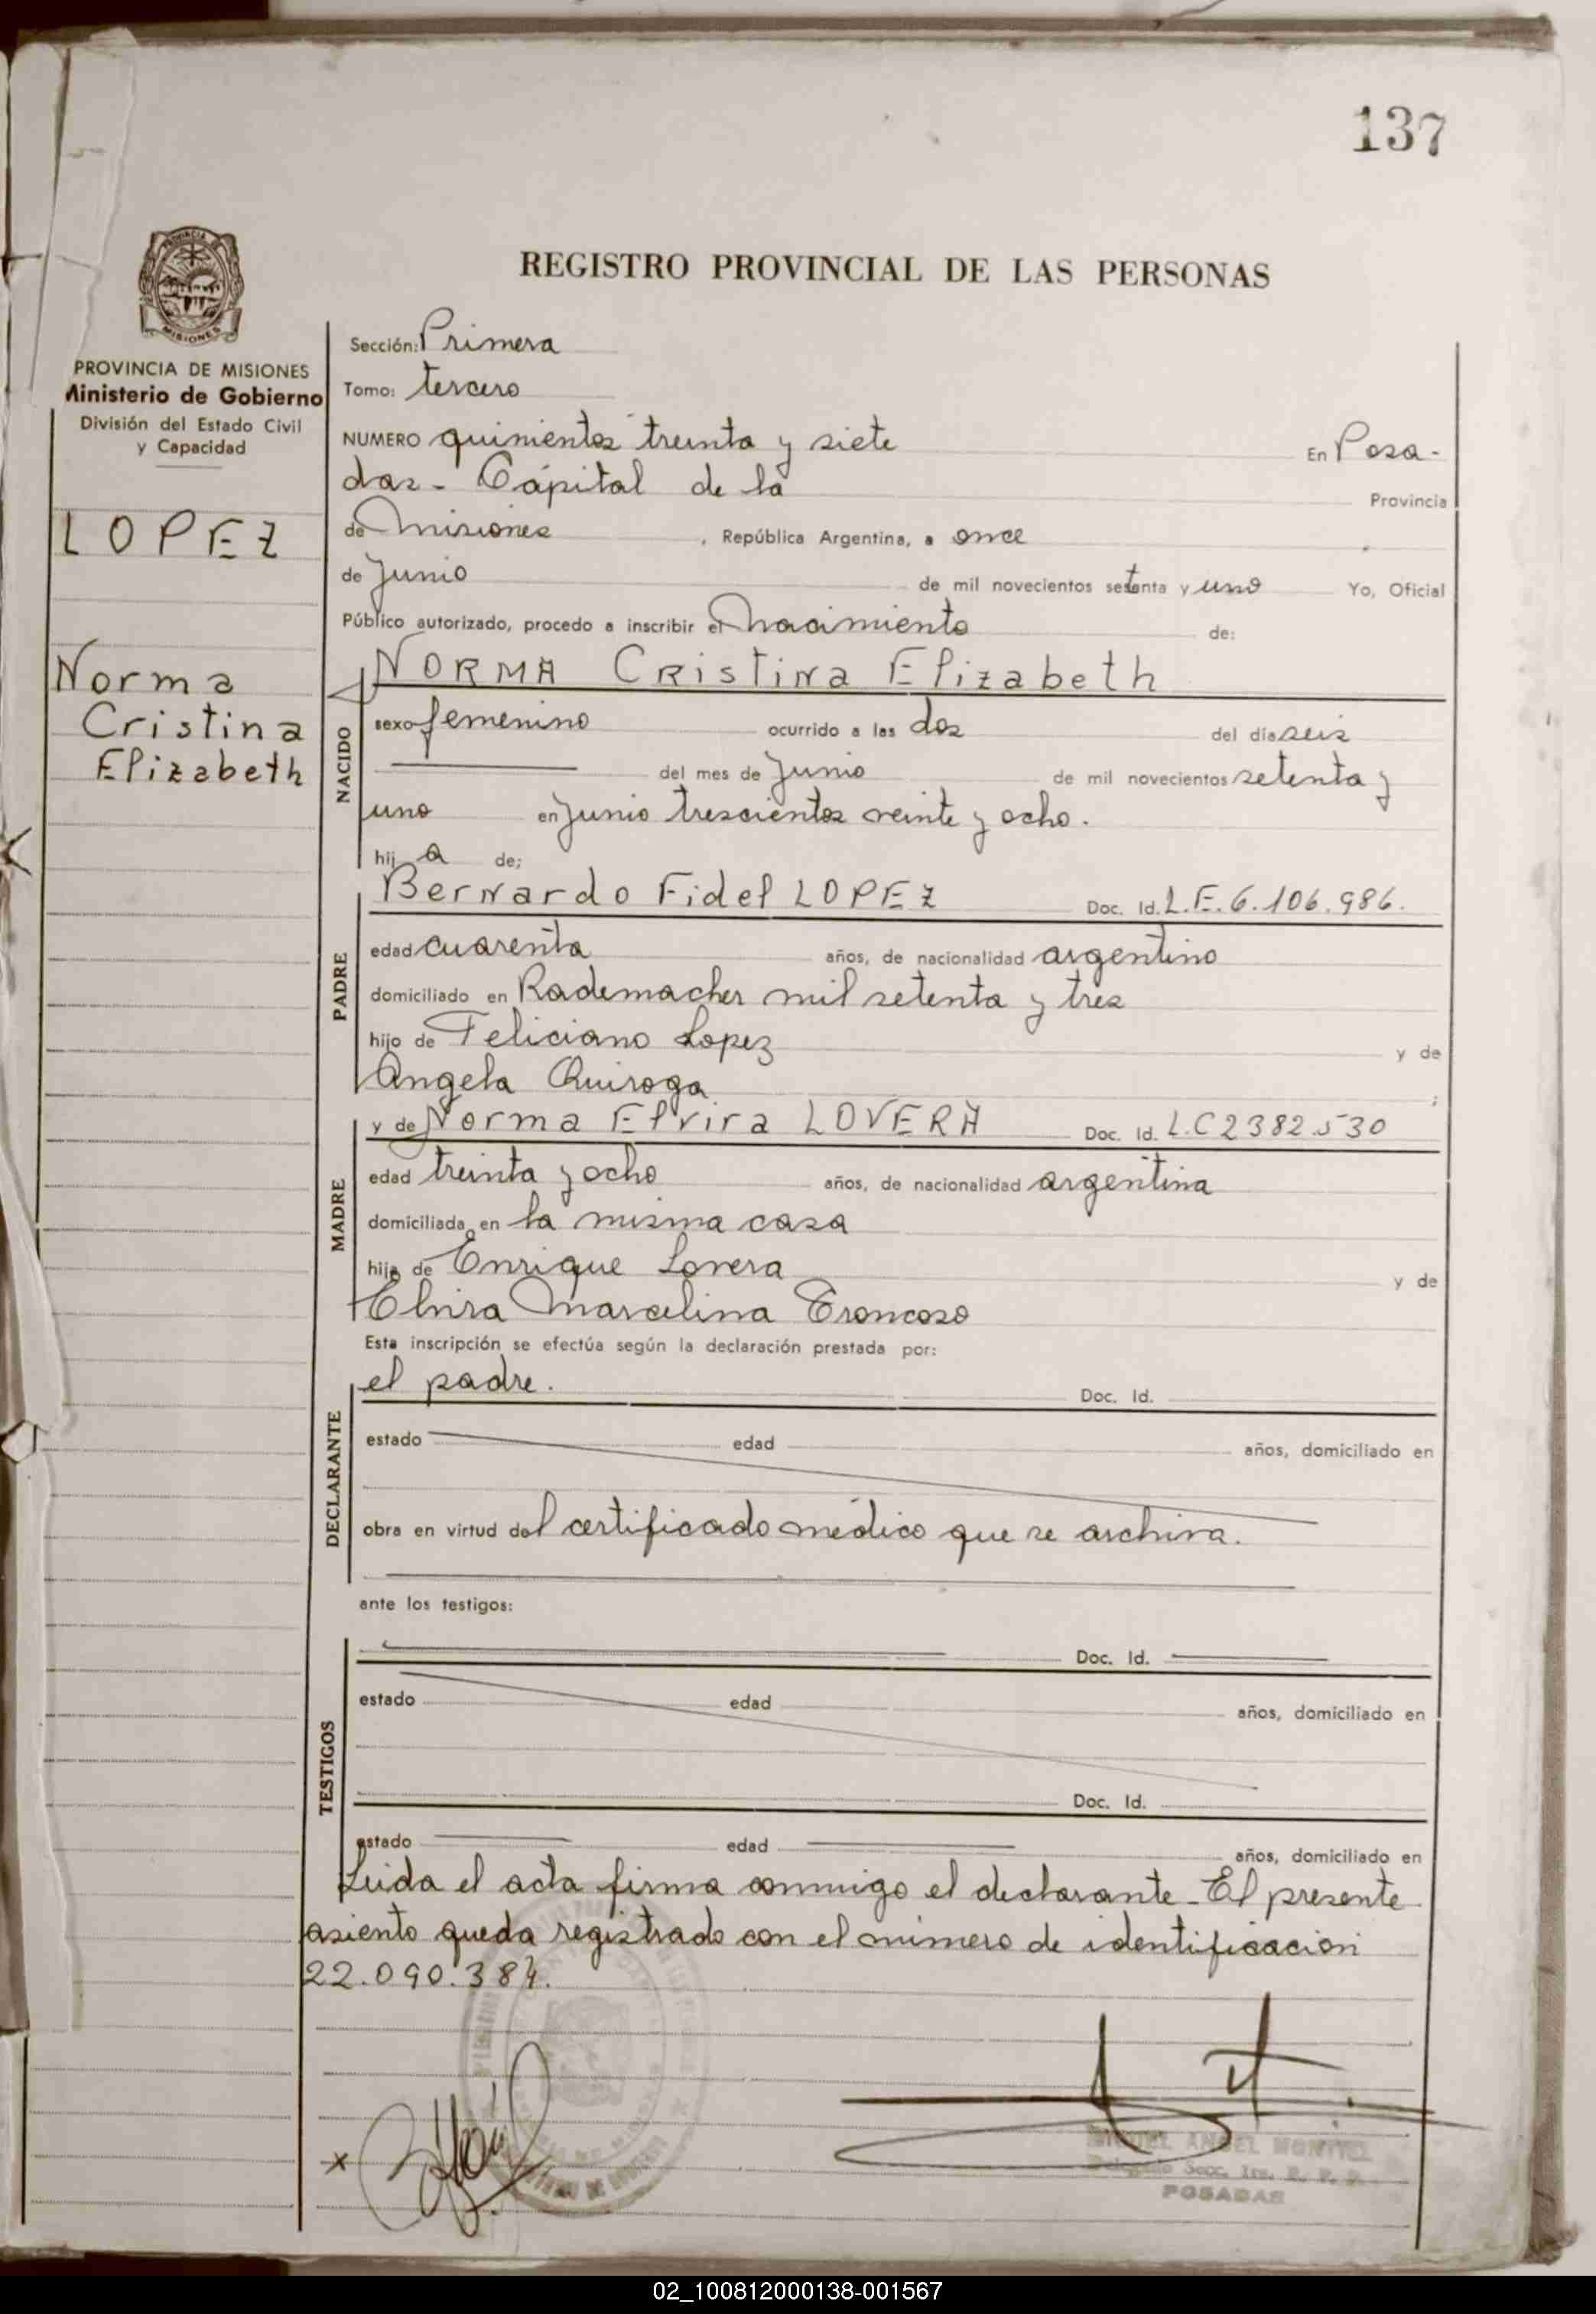 137
PROVINCIA DE
MISIONES
PROVINCIA DE MISIONES
Ministerio de Gobierno
División del Estado Civil
y Capacidad
LOPEZ
Norma
Cristina
Elizabeth
REGISTRO PROVINCIAL DE LAS PERSONAS
Sección: Primera
Tomo: tercero
NUMERO quinientos treinta y siete En Posa-
das - Capital de la Provincia
de Misiones, República Argentina, a once
de Junio de mil novecientos setenta y uno Yo, Oficial
Público autorizado, procedo a inscribir el nacimiento de:
NORMA Cristina Elizabeth
NACIDO
sexo femenino ocurrido a las dos del día seis
del mes de Junio de mil novecientos setenta y
uno en Junio trescientos veinte y ocho.
hij a de;
PADRE
Bernardo Fidel LOPEZ Doc. Id. L.E. 6.106.986.
edad cuarenta años, de nacionalidad argentino
domiciliado en Rademacher mil setenta y tres
hijo de Feliciano Lopez y de
Angela Quiroga ;
MADRE
y de Norma Elvira LOVERA Doc. Id. L.C 2382530
edad treinta y ocho años, de nacionalidad argentina
domiciliada en la misma casa
hija de Enrique Lovera y de
Elvira Marcelina Troncoso
Esta inscripción se efectúa según la declaración prestada por:
DECLARANTE
el padre. Doc. Id.
estado edad años, domiciliado en
obra en virtud del certificado médico que se archiva.
ante los testigos:
TESTIGOS
Doc. Id.
estado edad años, domiciliado en
Doc. Id.
estado edad años, domiciliado en
Leida el acta firma conmigo el declarante - El presente
asiento queda registrado con el número de identificación
22.090.384.
x
MIGUEL ANGEL
Delegado Secc. 1ra. R. P. P.
POSADAS
02_100812000138-001567